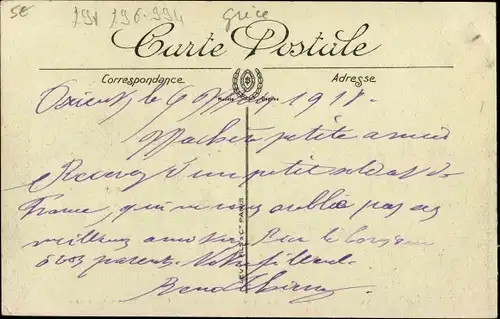 5€
291 296.994
Grèce
Carte Postale
Correspondance
Adresse
Orient, le 6 1918.
Ma chère petite amie
Recevez d'un petit soldat de
France, qui ne vous oublie pas ses
meilleurs amitiés. Bien le bonjour
à vos parents. Votre filleul.
René